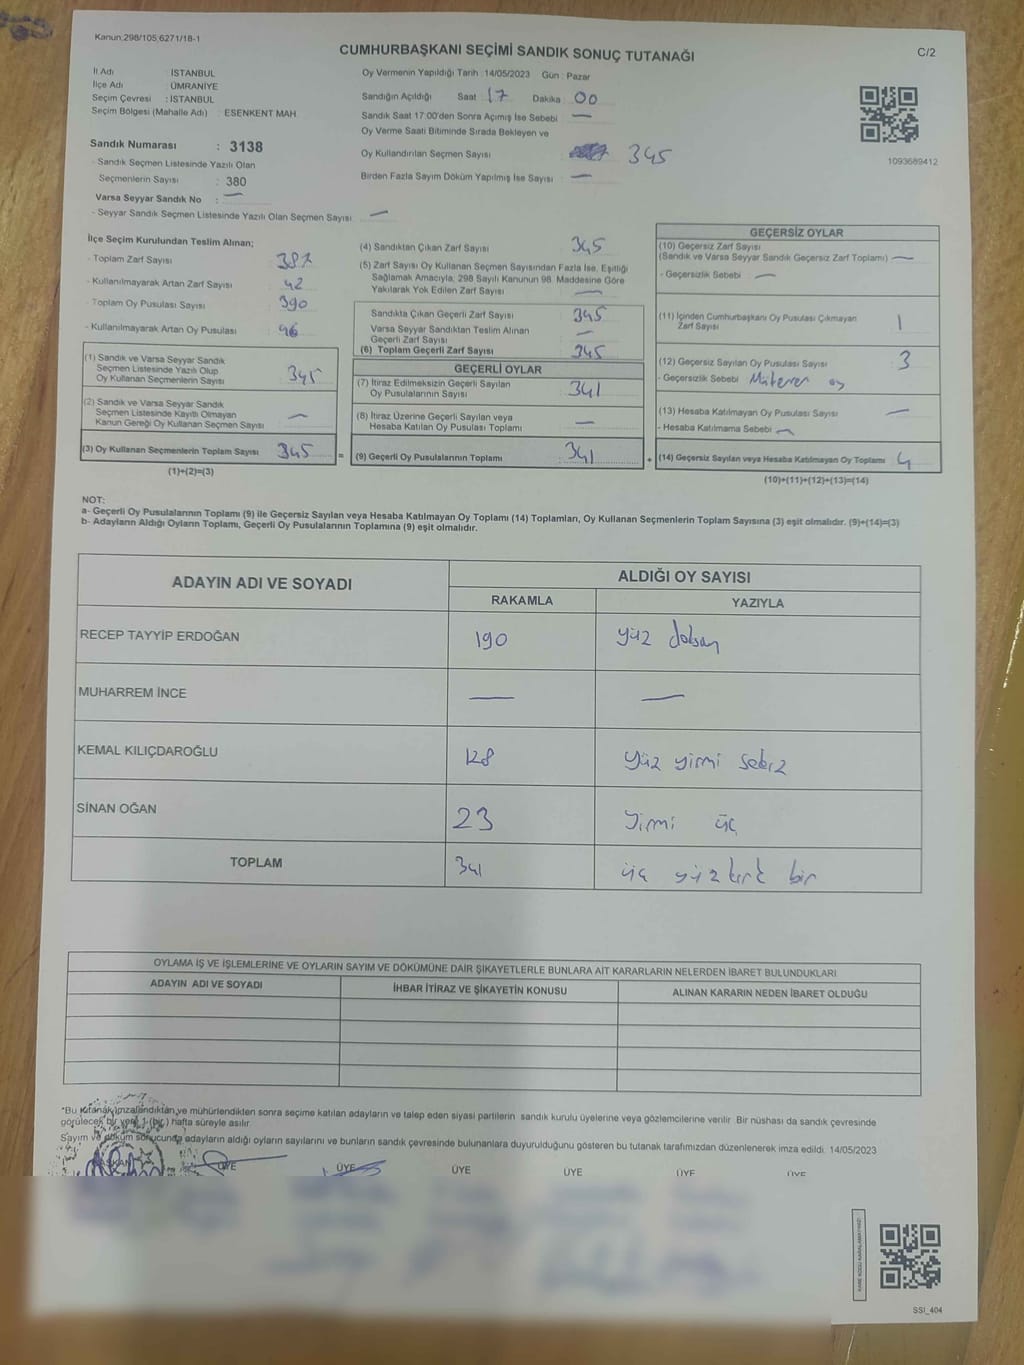 Kanun:298/105;6271/18-1
C/2
CUMHURBAŞKANI SEÇİMİ SANDIK SONUÇ TUTANAĞI
İl Adı : İSTANBUL
İlçe Adı : ÜMRANİYE
Seçim Çevresi : İSTANBUL
Seçim Bölgesi (Mahalle Adı) : ESENKENT MAH
Sandık Numarası : 3138
- Sandık Seçmen Listesinde Yazılı Olan
Seçmenlerin Sayısı : 380
Varsa Seyyar Sandık No : —
- Seyyar Sandık Seçmen Listesinde Yazılı Olan Seçmen Sayısı —
Oy Vermenin Yapıldığı Tarih :14/05/2023 Gün : Pazar
Sandığın Açıldığı Saat : 17 Dakika : 00
Sandık Saat 17:00'den Sonra Açımış İse Sebebi : —
Oy Verme Saati Bitiminde Sırada Bekleyen ve
Oy Kullandırılan Seçmen Sayısı : 345
Birden Fazla Sayım Döküm Yapılmış İse Sayısı : —
1093689412
İlçe Seçim Kurulundan Teslim Alınan;
- Toplam Zarf Sayısı : 387
- Kullanılmayarak Artan Zarf Sayısı : 42
- Toplam Oy Pusulası Sayısı : 390
- Kullanılmayarak Artan Oy Pusulası : 46
(1) Sandık ve Varsa Seyyar Sandık
Seçmen Listesinde Yazılı Olup
Oy Kullanan Seçmenlerin Sayısı : 345
(2) Sandık ve Varsa Seyyar Sandık
Seçmen Listesinde Kayıtlı Olmayan
Kanun Gereği Oy Kullanan Seçmen Sayısı : —
(3) Oy Kullanan Seçmenlerin Toplam Sayısı : 345
(1)+(2)=(3)
(4) Sandıktan Çıkan Zarf Sayısı : 345
(5) Zarf Sayısı Oy Kullanan Seçmen Sayısından Fazla İse, Eşitliği
Sağlamak Amacıyla; 298 Sayılı Kanunun 98. Maddesine Göre
Yakılarak Yok Edilen Zarf Sayısı : —
Sandıkta Çıkan Geçerli Zarf Sayısı : 345
Varsa Seyyar Sandıktan Teslim Alınan
Geçerli Zarf Sayısı : —
(6) Toplam Geçerli Zarf Sayısı : 345
GEÇERLİ OYLAR
(7) İtiraz Edilmeksizin Geçerli Sayılan
Oy Pusulalarının Sayısı : 341
(8) İtiraz Üzerine Geçerli Sayılan veya
Hesaba Katılan Oy Pusulası Toplamı : —
= (9) Geçerli Oy Pusulalarının Toplamı : 341
GEÇERSİZ OYLAR
(10) Geçersiz Zarf Sayısı
(Sandık ve Varsa Seyyar Sandık Geçersiz Zarf Toplamı) —
- Geçersizlik Sebebi : —
(11) İçinden Cumhurbaşkanı Oy Pusulası Çıkmayan
Zarf Sayısı : 1
(12) Geçersiz Sayılan Oy Pusulası Sayısı : 3
- Geçersizlik Sebebi : oy
(13) Hesaba Katılmayan Oy Pusulası Sayısı : —
- Hesaba Katılmama Sebebi : —
+ (14) Geçersiz Sayılan veya Hesaba Katılmayan Oy Toplamı : 4
(10)+(11)+(12)+(13)=(14)
NOT:
a- Geçerli Oy Pusulalarının Toplamı (9) ile Geçersiz Sayılan veya Hesaba Katılmayan Oy Toplamı (14) Toplamları, Oy Kullanan Seçmenlerin Toplam Sayısına (3) eşit olmalıdır. (9)+(14)=(3)
b- Adayların Aldığı Oyların Toplamı, Geçerli Oy Pusulalarının Toplamına (9) eşit olmalıdır.
ADAYIN ADI VE SOYADI
ALDIĞI OY SAYISI
RAKAMLA YAZIYLA
RECEP TAYYİP ERDOĞAN 190 yüz doksan
MUHARREM İNCE — —
KEMAL KILIÇDAROĞLU 128 yüz yirmi sekiz
SİNAN OĞAN 23 yirmi üç
TOPLAM 341 üç yüzkırk bir
OYLAMA İŞ VE İŞLEMLERİNE VE OYLARIN SAYIM VE DÖKÜMÜNE DAİR ŞİKAYETLERLE BUNLARA AİT KARARLARIN NELERDEN İBARET BULUNDUKLARI
ADAYIN ADI VE SOYADI İHBAR İTİRAZ VE ŞİKAYETİN KONUSU ALINAN KARARIN NEDEN İBARET OLDUĞU
*Bu tutanak imzalandıktan ve mühürlendikten sonra seçime katılan adayların ve talep eden siyasi partilerin sandık kurulu üyelerine veya gözlemcilerine verilir. Bir nüshası da sandık çevresinde
görülecek bir yere 1 (bir) hafta süreyle asılır.
Sayım ve döküm sonucunda adayların aldığı oyların sayılarını ve bunların sandık çevresinde bulunanlara duyurulduğunu gösteren bu tutanak tarafımızdan düzenlenerek imza edildi. 14/05/2023
BAŞKAN ÜYE ÜYE ÜYE ÜYE ÜYE ÜYE
SSI_404